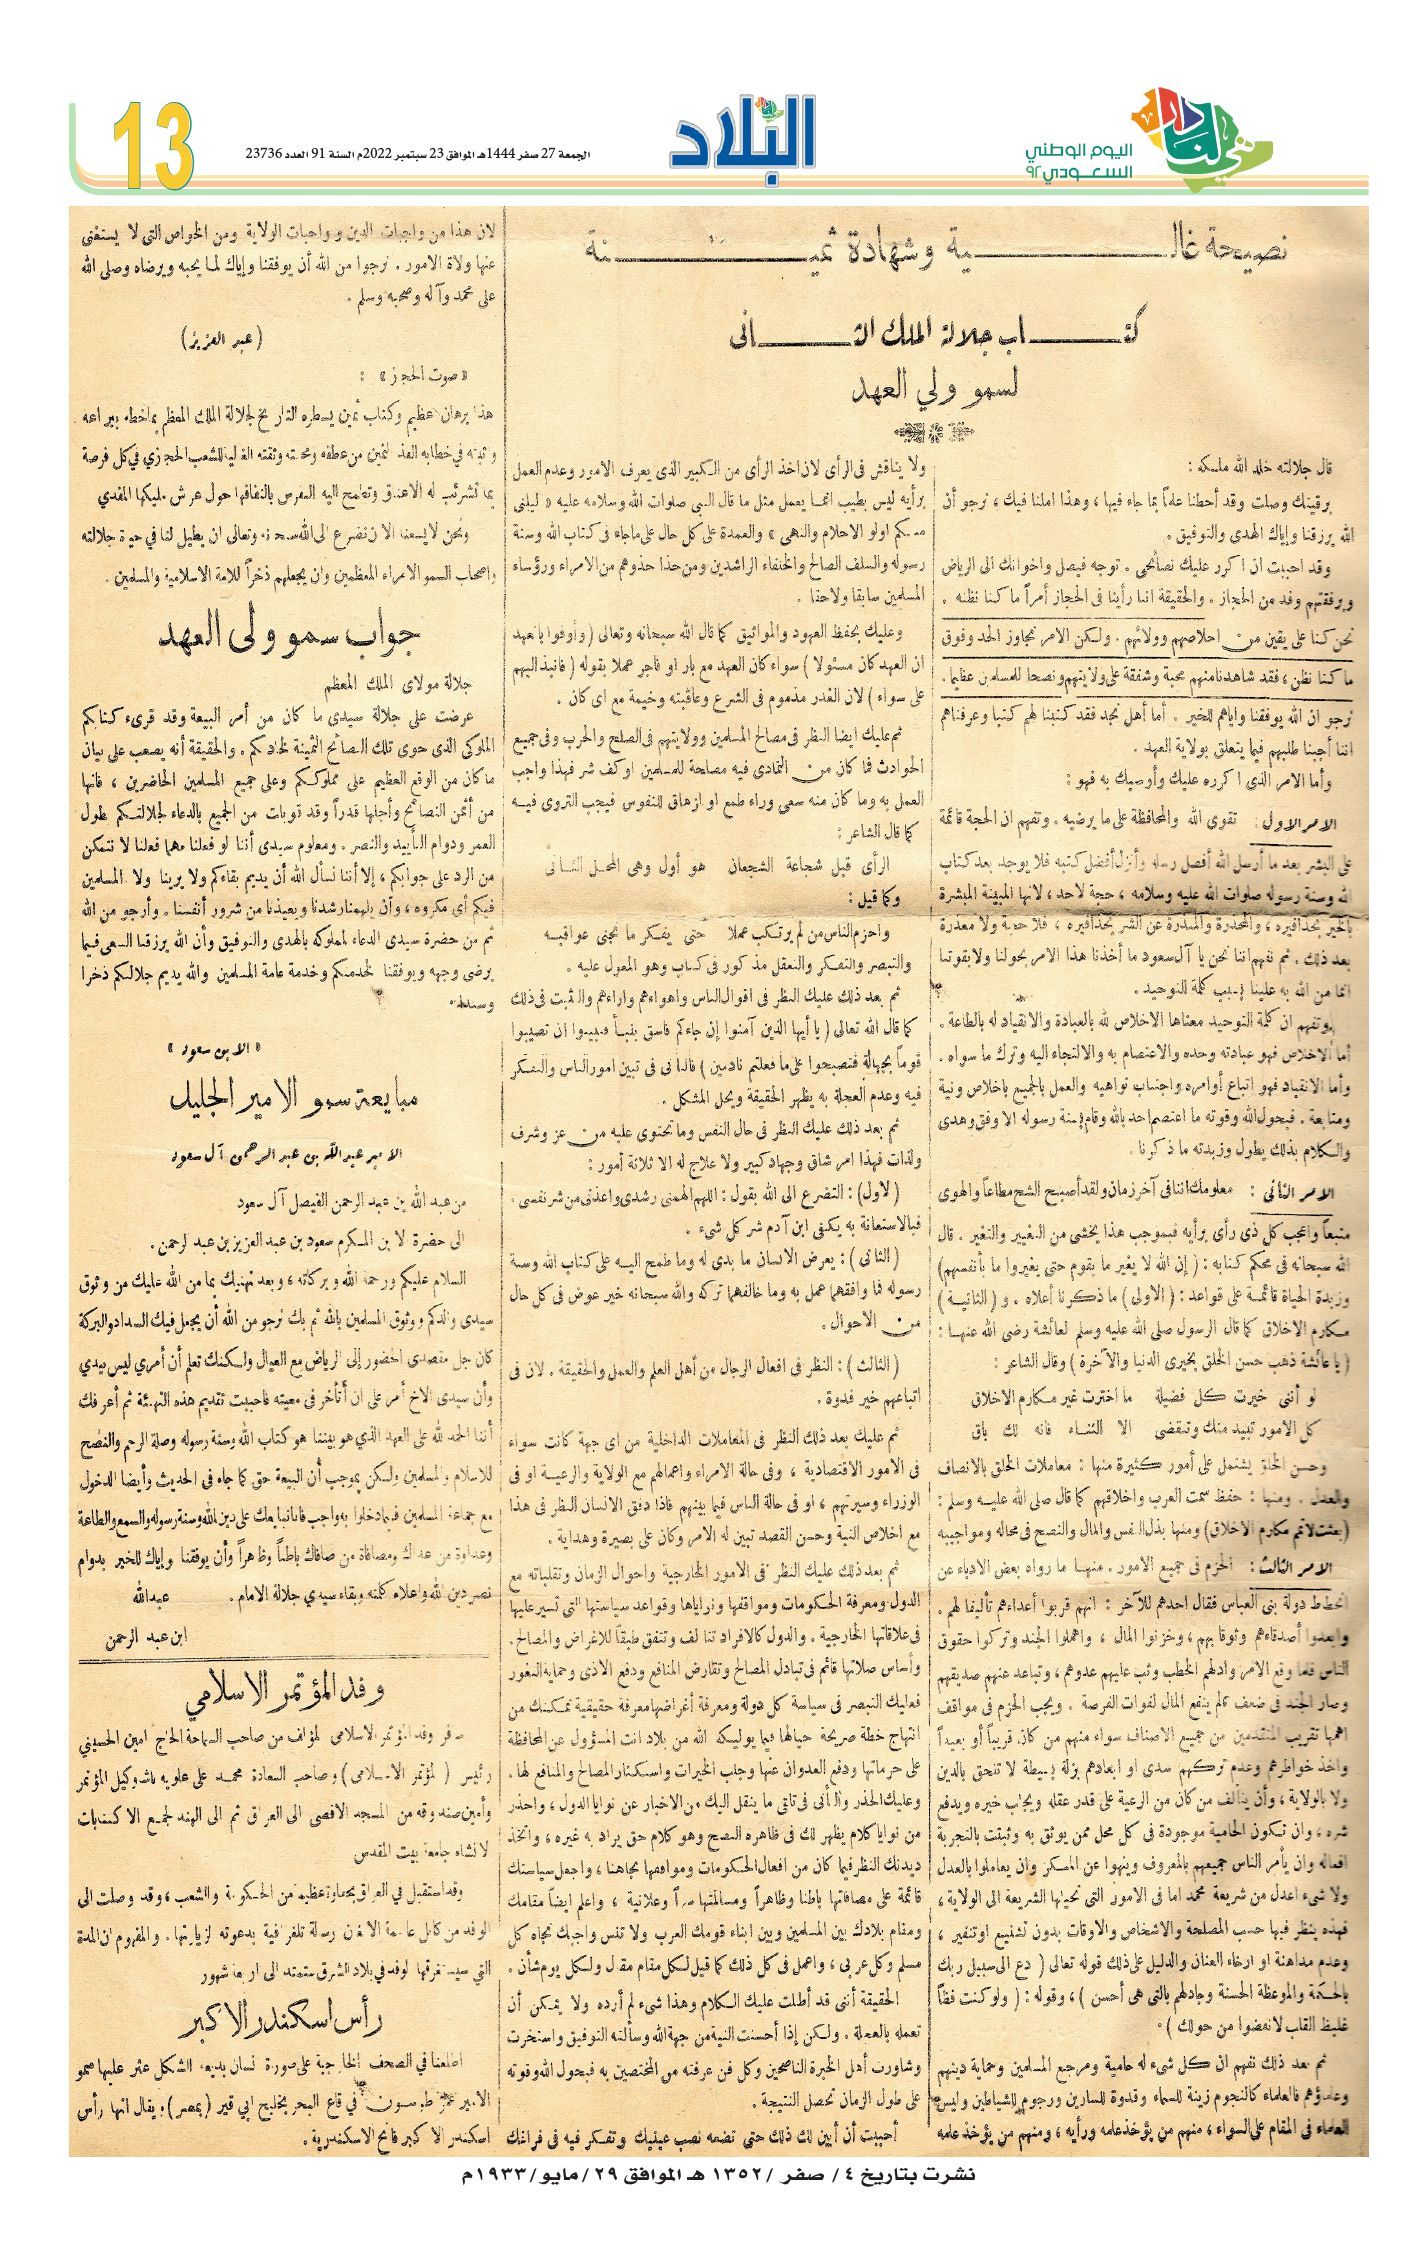 13
الجمعة 27 صفر 1444هـ الموافق 23 سبتمبر 2022م السنة 91 العدد 23736
البلاد
هي لنا دار
اليوم الوطني
السعودي ٩٢
نصيحة غالية وشهادة ثمينة
كتاب جلالة الملك الثانى
لسمو ولي العهد
قال جلالته خلد الله ملكه :
برقيتك وصلت وقد أحطنا علماً بما جاء فيها ، وهذا املنا فيك ، نرجو أن
الله يرزقنا وإياك الهدى والتوفيق .
وقد احببت ان اكرر عليك نصائحى . توجه فيصل واخوانك الى الرياض
وبرفقتهم وفد من الحجاز . والحقيقة اننا رأينا فى الحجاز أمراً ما كنا نظنه .
نحن كنا على يقين من اخلاصهم وولائهم . ولكن الامر تجاوز الحد وفوق
ما كنا نظن ، فقد شاهدنا منهم محبة وشفقة على ولايتهم ونصحا للمسلمين عظيما .
نرجو ان الله يوفقنا واياهم للخير . أما أهل نجد فقد كتبنا لهم كتبا وعرفناهم
اننا أجبنا طلبهم فيما يتعلق بولاية العهد .
وأما الامر الذى اكرره عليك وأوصيك به فهو :
الامر الاول : تقوى الله والمحافظة على ما يرضيه . وتفهم ان الحجة قائمة
على البشر بعد ما أرسل الله أفضل رسله وأنزل أفضل كتبه فلا يوجد بعد كتاب
الله وسنة رسوله صلوات الله عليه وسلامه ، حجة لاحد ، لانها المبينة المبشرة
بالخير بحذافيره ، والمحذرة والمنذرة عن الشر بحذافيره ، فلا حجة ولا معذرة
بعد ذلك . ثم نفهم اننا نحن يا آل سعود ما أخذنا هذا الامر بحولنا ولا بقوتنا
انما من الله به علينا بسبب كلمة التوحيد .
وتفهم ان كلمة التوحيد معناها الاخلاص لله بالعبادة والانقياد له بالطاعة .
أما الاخلاص فهو عبادته وحده والاعتصام به والالتجاء اليه وترك ما سواه .
وأما الانقياد فهو اتباع أوامره واجتناب نواهيه والعمل بالجميع باخلاص ونية
ومتابعة . فبحول الله وقوته ما اعتصم احد بالله وقام بسنة رسوله الا وفق وهدى
والكلام بذلك يطول وزبدته ما ذكرنا .
الامر الثانى : معلومك اننا فى آخر زمان ولقد أصبح الشح مطاعاً والهوى
متبعاً واعجب كل ذى رأى برأيه فبموجب هذا يخشى من التغيير والتغير . قال
الله سبحانه فى محكم كتابه : ( إن الله لا يغير ما بقوم حتى يغيروا ما بأنفسهم)
وزبدة الحياة قائمة على قواعد : ( الاولى ) ما ذكرنا أعلاه . و ( الثانية )
مكارم الاخلاق كما قال الرسول صلى الله عليه وسلم لعائشة رضى الله عنها :
( يا عائشة ذهب حسن الخلق بخيرى الدنيا والآخرة ) وقال الشاعر :
لو أننى خيرت كل فضيلة ما اخترت غير مكارم الاخلاق
كل الامور تبيد منك وتنقضى الا الثناء فانه لك باق
وحسن الخلق يشتمل على أمور كثيرة منها : معاملات الخلق بالانصاف
والعدل . ومنها : حفظ سمت العرب واخلاقهم كما قال صلى الله عليه وسلم :
(بعثت لاتمم مكارم الاخلاق) ومنها بذل النفس والمال والنصح فى محاله ومواجيبه
الامر الثالث : الحزم فى جميع الامور . منها ما رواه بعض الادباء عن
انحطاط دولة بنى العباس فقال احدهم للآخر : انهم قربوا أعداءهم تأليفا لهم .
وابعدوا أصدقاءهم وثوقا بهم ، وخزنوا المال ، واهملوا الجند وتركوا حقوق
الناس فلما وقع الامر وادلهم الخطب وثب عليهم عدوهم ، وتباعد عنهم صديقهم
وصار الجند فى ضعف فلم ينفع المال لفوات الفرصة . ويجب الحزم فى مواقف
اهمها تقريب المتقدمين من جميع الاصناف سواء منهم من كان قريباً أو بعيداً
واخذ خواطرهم وعدم تركهم سدى او ابعادهم بزلة بسيطة لا تلحق بالدين
ولا بالولاية ، وأن يتألف من كان من الرعية على قدر عقله ويجلب خيره ويدفع
شره ، وان تكون الحامية موجودة فى كل محل ممن يوثق به وثبتت بالتجربة
افعاله وان يأمر الناس جميعهم بالمعروف وينهوا عن المنكر وان يعاملوا بالعدل
ولا شىء اعدل من شريعة محمد اما فى الامور التى تحيلها الشريعة الى الولاية ،
فهذه ينظر فيها حسب المصلحة والاشخاص والاوقات بدون تشنيع او تنفير ،
وعدم مداهنة او ارخاء العنان والدليل على ذلك قوله تعالى ( ادع الى سبيل ربك
بالحكمة والموعظة الحسنة وجادلهم بالتى هى أحسن ) ، وقوله : ( ولو كنت فظاً
غليظ القلب لانفضوا من حولك ) .
ثم بعد ذلك تفهم ان كل شىء له حامية ومرجع المسلمين وحماية دينهم
وعلماؤهم فالعلماء كالنجوم زينة للسماء وقدوة للسارين ورجوم للشياطين وليس
العلماء فى المقام على السواء ، منهم من يؤخذ علمه ورأيه ، ومنهم من يؤخذ علمه
ولا يناقش فى الرأى لان اخذ الرأى من الكبير الذى يعرف الامور وعدم العمل
برأيه ليس بطيب انما يعمل مثل ما قال النبى صلوات الله وسلامه عليه « ليلنى
منكم اولو الاحلام والنهى » والعمدة على كل حال على ما جاء فى كتاب الله وسنة
رسوله والسلف الصالح والخلفاء الراشدين ومن حذا حذوهم من الامراء ورؤساء
المسلمين سابقا ولاحقا .
وعليك بحفظ العهود والمواثيق كما قال الله سبحانه وتعالى ( وأوفوا بالعهد
ان العهد كان مسئولا ) سواء كان العهد مع بار او فاجر عملا بقوله ( فانبذ اليهم
على سواء ) لان الغدر مذموم فى الشرع وعاقبته وخيمة مع اى كان .
ثم عليك ايضا النظر فى مصالح المسلمين وولايتهم فى الصلح والحرب وفى جميع
الحوادث فما كان من التمادى فيه مصلحة للمسلمين او كف شر فهذا واجب
العمل به وما كان منه سعى وراء طمع او ازهاق للنفوس فيجب التروى فيه
كما قال الشاعر :
الرأى قبل شجاعة الشجعان هو أول وهى المحل الثانى
وكما قيل :
واحزم الناس من لم يرتكب عملا حتى يفكر ما تجنى عواقبه
والتبصر والتفكر والتعقل مذكور فى كتاب وهو المعول عليه .
ثم بعد ذلك عليك النظر فى اقوال الناس واهواءهم واراءهم والتثبت فى ذلك
كما قال الله تعالى ( يا أيها الذين آمنوا إن جاءكم فاسق بنبأ فتبينوا ان تصيبوا
قوماً بجهالة فتصبحوا على ما فعلتم نادمين ) فالتأنى فى تبين امور الناس والتفكر
فيه وعدم العجلة به يظهر الحقيقة ويحل المشكل .
ثم بعد ذلك عليك النظر فى حال النفس وما تحتوى عليه من عز وشرف
ولذات فهذا امر شاق وجهاد كبير ولا علاج له الا ثلاثة أمور :
( لاول ) : التضرع الى الله بقول : اللهم الهمنى رشدى واعذنى من شر نفسى .
فبالاستعانة به يكفى ابن آدم شر كل شىء .
( الثانى ) : يعرض الانسان ما بدى له وما طمح اليه على كتاب الله وسنة
رسوله فما وافقهما عمل به وما خالفهما تركه والله سبحانه خير عوض فى كل حال
من الاحوال .
( الثالث ) : النظر فى افعال الرجال من أهل العلم والعمل والحقيقة . لان فى
اتباعهم خير قدوة .
ثم عليك بعد ذلك النظر فى المعاملات الداخلية من اى جهة كانت سواء
فى الامور الاقتصادية ، وفى حالة الامراء واعمالهم مع الولاية والرعية او فى
الوزراء وسيرتهم ، او فى حالة الناس فيما بينهم فاذا دقق الانسان النظر فى هذا
مع اخلاص النية وحسن القصد تبين له الامر وكان على بصيرة وهداية .
ثم بعد ذلك عليك النظر فى الامور الخارجية واحوال الزمان وتقلباته مع
الدول ومعرفة الحكومات ومواقفها ونواياها وقواعد سياستها التى تسير عليها
فى علاقاتها الخارجية . والدول كالافراد تتالف وتتفق طبقاً للاغراض والمصالح .
وأساس صلاتها قائم فى تبادل المصالح وتقارض المنافع ودفع الاذى وحماية الثغور
فعليك التبصر فى سياسة كل دولة ومعرفة أغراضها معرفة حقيقية تمكنك من
انتهاج خطة صريحة حيالها فيما يوليكه الله من بلاد انت المسؤول عن المحافظة
على حرماتها ودفع العدوان عنها وجلب الخيرات واستكثار المصالح والمنافع لها .
وعليك الحذر والتأنى فى تلقى ما ينقل اليك من الاخبار عن نوايا الدول ، واحذر
من نوايا كلام يظهر لك فى ظاهره النصح وهو كلام حق يراد به غيره ، واتخذ
ديدنك النظر فيما كان من افعال الحكومات ومواقفها تجاهنا ، واجعل سياستك
قائمة على مصافاتها باطنا وظاهراً ومسالمتها سراً وعلانية ، واعلم ايضاً مقامك
ومقام بلادك بين المسلمين وبين ابناء قومك العرب ولا تنس واجبك تجاه كل
مسلم وكل عربى ، واعمل فى كل ذلك كما قيل لكل مقام مقال ولكل يوم شأن .
الحقيقة أننى قد أطلت عليك الكلام وهذا شىء لم أرده ولا يمكن أن
تعمله بالعجلة . ولكن إذا أحسنت النية من جهة الله وسألته التوفيق واستخرت
وشاورت أهل الخبرة الناصحين وكل فن عرفته من المختصين به فبحول الله وقوته
على طول الزمان تحصل النتيجة .
أحببت أن أبين لك ذلك حتى تضعه نصب عينيك وتفكر فيه فى فراغك
لان هذا من واجبات الدين وواجبات الولاية ومن الخواص التى لا يستغنى
عنها ولاة الامور . نرجوا من الله أن يوفقنا وإياك لما يحبه ويرضاه وصلى الله
على محمد وآله وصحبه وسلم .
(عبد العزيز)
« صوت الحجاز » :
هذا برهان عظيم وكتاب ثمين يسطره التاريخ لجلالة الملك المعظم بما خطه بيراعه
وثبته في خطابه الفذ الثمين من عطفه ومحبته وثقته الغالية للشعب الحجازي في كل فرصة
بما تشرئب له الاعناق وتطمح اليه النفوس بالتفافها حول عرش مليكها المفدي
ونحن لا يسعنا الا ان نضرع الى الله سبحانه وتعالى ان يطيل لنا في حياة جلالته
واصحاب السمو الامراء المعظمين وان يجعلهم ذخراً للامة الاسلامية والمسلمين .
جواب سمو ولى العهد
جلالة مولاى الملك المعظم
عرضت على جلالة سيدى ما كان من أمر البيعة وقد قرىء كتابكم
الملوكى الذى حوى تلك النصائح الثمينة لخادمكم . والحقيقة أنه يصعب على بيان
ما كان من الوقع العظيم على مملوككم وعلى جميع المسلمين الحاضرين ، فانها
من أثمن النصائح وأجلها قدراً وقد قوبلت من الجميع بالدعاء لجلالتكم بطول
العمر ودوام التأييد والنصر . ومعلوم سيدى أننا لو فعلنا مهما فعلنا لا نتمكن
من الرد على جوابكم ، إلا أننا نسأل الله أن يديم بقاءكم ولا يرينا ولا المسلمين
فيكم أى مكروه ، وأن يلهمنا رشدنا ويعيذنا من شرور أنفسنا . وأرجو من الله
ثم من حضرة سيدى الدعاء لمملوكه بالهدى والتوفيق وأن الله يرزقنا السعى فيما
يرضى وجهه ويوفقنا لخدمتكم وخدمة عامة المسلمين والله يديم جلالتكم ذخرا
وسندا
« الابن سعود »
مبايعة سمو الامير الجليل
الامير عبد الله بن عبد الرحمن آل سعود
من عبد الله بن عبد الرحمن الفيصل آل سعود
الى حضرة الابن المكرم سعود بن عبد العزيز بن عبد لرحمن .
السلام عليكم ورحمة الله وبركاته ، وبعد تهنيك بما من الله عليك من وثوق
سيدى والدكم ووثوق المسلمين بالله ثم بك نرجو من الله أن يجعل فيك السداد والبركة
كان جل مقصدى الحضور إلى الرياض مع العيال ولكنك تعلم أن أمري ليس بيدي
وأن سيدى الاخ أمر على ان أتأخر في معيته فاحببت تقديم هذه التهنئة ثم أعرفك
أننا الحمد لله على العهد الذي هو بيننا هو كتاب الله وسنة رسوله وصلة الرحم والنصح
للاسلام والمسلمين ولكن بموجب أن البيعة حق كما جاء فى الحديث وأيضا الدخول
مع جماعة المسلمين فيما دخلوا به واجب فاننا نبايعك على دين الله وسنة رسوله والسمع والطاعة
وعداوة من عداك ومصافاة من صافاك باطناً وظاهراً وأن يوفقنا وإياك للخير بدوام
نصر دين الله واعلاء كلمته وبقاء سيدي جلالة الامام . عبد الله
ابن عبد الرحمن
وفد المؤتمر الاسلامي
سافر وفد المؤتمر الاسلامى المؤلف من صاحب السماحة الحاج امين الحسيني
رئيس ( المؤتمر الاسلامى ) وصاحب السعادة محمد على علوبه باشا وكيل المؤتمر
وأمين صندوقه من المسجد الاقصى الى العراق ثم الى الهند لجمع الاكتتابات
لانشاء جامعة بيت المقدس
وقد استقبل في العراق بحفاوة عظيمة من الحكومة والشعب ، وقد وصلت الى
الوفد من كابل عاصمة الافغان رسالة تلغرافية بدعوته لزيارتها . والمفهوم ان المدة
التي سيستغرقها لوفد في بلاد الشرق ستمتد الى اربعة شهور
رأس اسكندر الاكبر
اطلعنا في الصحف الخارجية على صورة تمثال بديع الشكل عثر عليها سمو
الامير عمر طوسون في قاع البحر بخليج ابي قير (بمصر) ؛ يقال انها رأس
اسكندر الاكبر فاتح الاسكندرية .
نشرت بتاريخ ٤ / صفر / ١٣٥٢ هـ الموافق ٢٩ / مايو / ١٩٣٣م